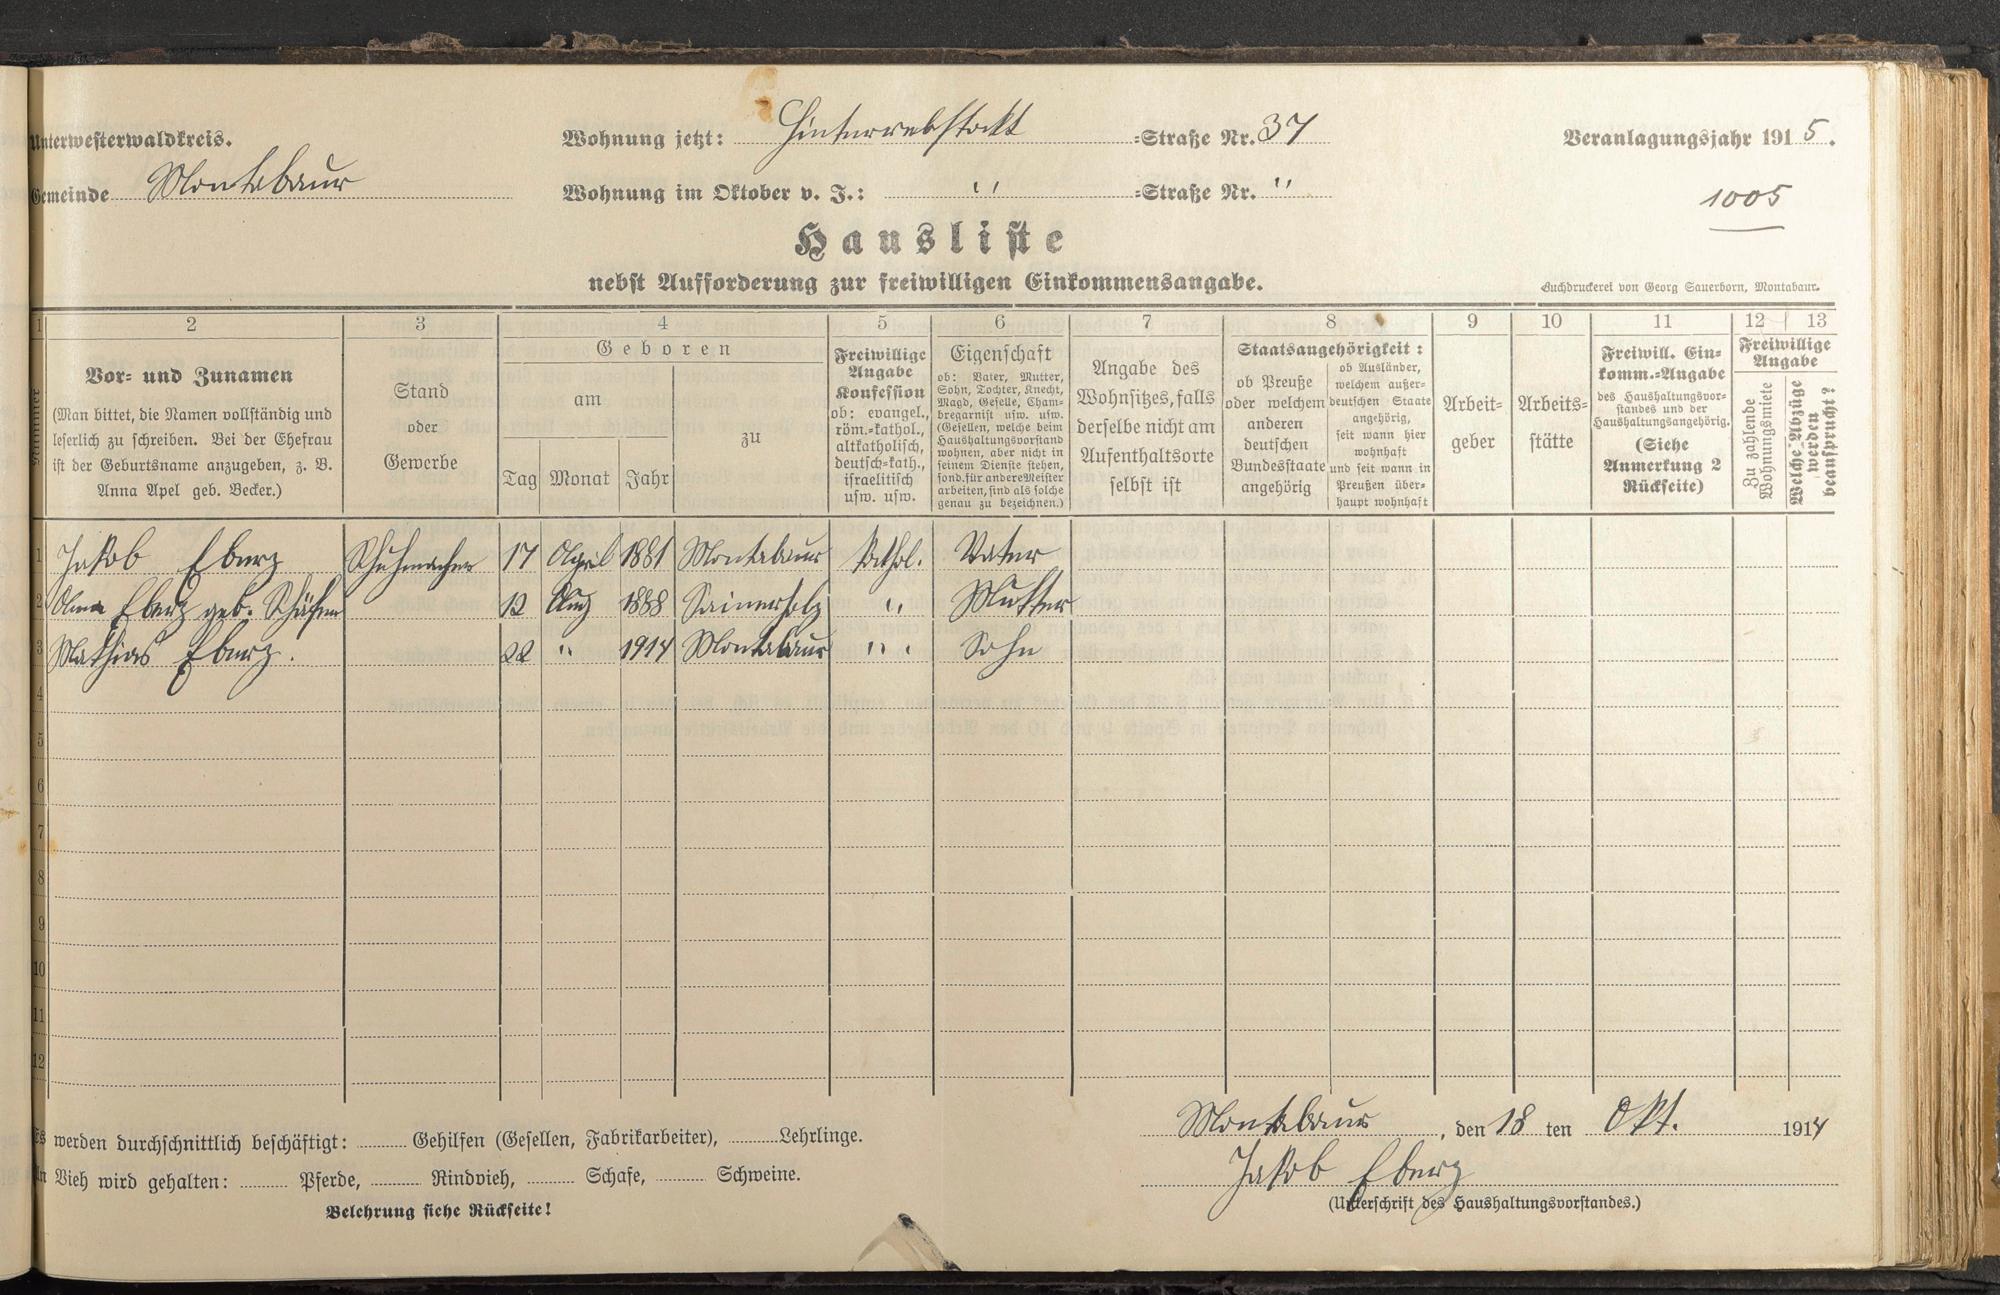 Unterwesterwaldkreis.
Wohnung jetzt: Hinterrebstockt =Straße Nr. 37
Veranlagungsjahr 1915.
Gemeinde Montabaur
Wohnung im Oktober v. J.: " =Straße Nr. "
1005
Hausliste
nebst Aufforderung zur freiwilligen Einkommensangabe.
Buchdruckerei von Georg Sauerborn, Montabaur.
1 2 3 4 5 6 7 8 9 10 11 12 13
Nummer
Vor= und Zunamen
(Man bittet, die Namen vollständig und
leserlich zu schreiben. Bei der Ehefrau
ist der Geburtsname anzugeben, z. B.
Anna Apel geb. Becker.)
Stand
oder
Gewerbe
Geboren
am
Tag Monat Jahr
zu
Freiwillige
Angabe
Konfession
ob: evangel.,
röm.=kathol.,
altkatholisch,
deutsch=kath.,
israelitisch
usw. usw.
Eigenschaft
ob: Vater, Mutter,
Sohn, Tochter, Knecht,
Magd, Geselle, Cham=
bregarnist usw. usw.
(Gesellen, welche beim
Haushaltungsvorstand
wohnen, aber nicht in
seinem Dienste stehen,
sond. für andere Meister
arbeiten, sind als solche
genau zu bezeichnen.)
Angabe des
Wohnsitzes, falls
derselbe nicht am
Aufenthaltsorte
selbst ist
Staatsangehörigkeit:
ob Preuße
oder welchem
anderen
deutschen
Bundesstaate
angehörig
ob Ausländer,
welchem außer=
deutschen Staate
angehörig,
seit wann hier
wohnhaft
und seit wann in
Preußen über=
haupt wohnhaft
Arbeit=
geber
Arbeits=
stätte
Freiwill. Ein=
komm.=Angabe
des Haushaltungsvor=
standes und der
Haushaltungsangehörig.
(Siehe
Anmerkung 2
Rückseite)
Freiwillige
Angabe
Zu zahlende
Wohnungsmiete
Welche Abzüge
werden
beansprucht?
1 Jakob Eberz Schuhmacher 17 April 1881 Montabaur kathol. Vater
2 Anna Eberz geb. Schäfer 12 Aug 1888 Sainerholz " Mutter
3 Mathias Eberz. 22 " 1914 Montabaur " Sohn
4
5
6
7
8
9
10
11
12
Es werden durchschnittlich beschäftigt: Gehilfen (Gesellen, Fabrikarbeiter), Lehrlinge.
An Vieh wird gehalten: Pferde, Rindvieh, Schafe, Schweine.
Belehrung siehe Rückseite!
Montabaur, den 18 ten Okt. 1914
Jakob Eberz
(Unterschrift des Haushaltungsvorstandes.)